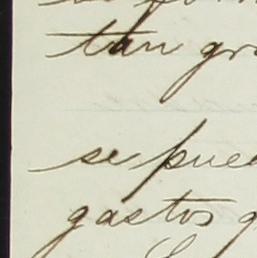 tan gra
se pued
gastos g